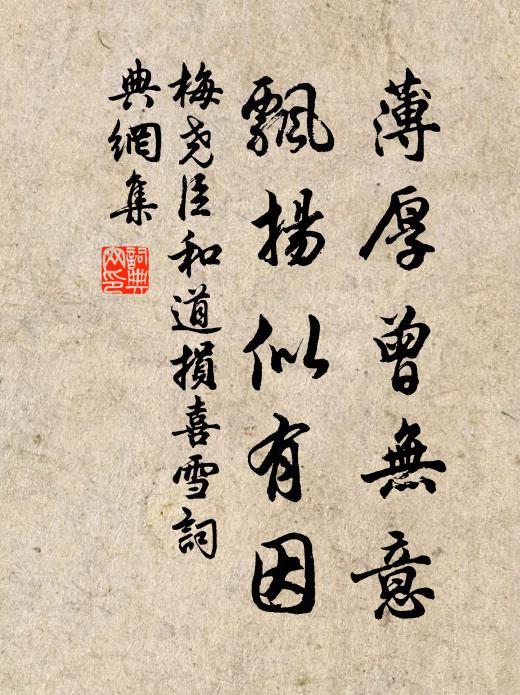 薄厚曾無意
飄揚似有因
梅堯臣和道損喜雪詞
典網集
詞典
文印